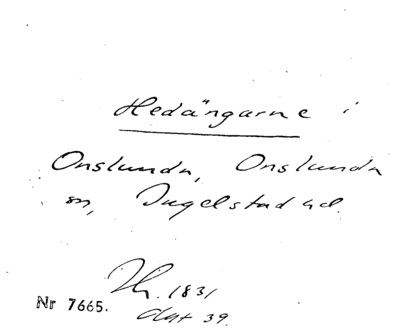 Hedängarne i
Onslunda, Onslunda
sn, Ingelstad hd.
Th. 1831
dat 39.
Nr 7665.